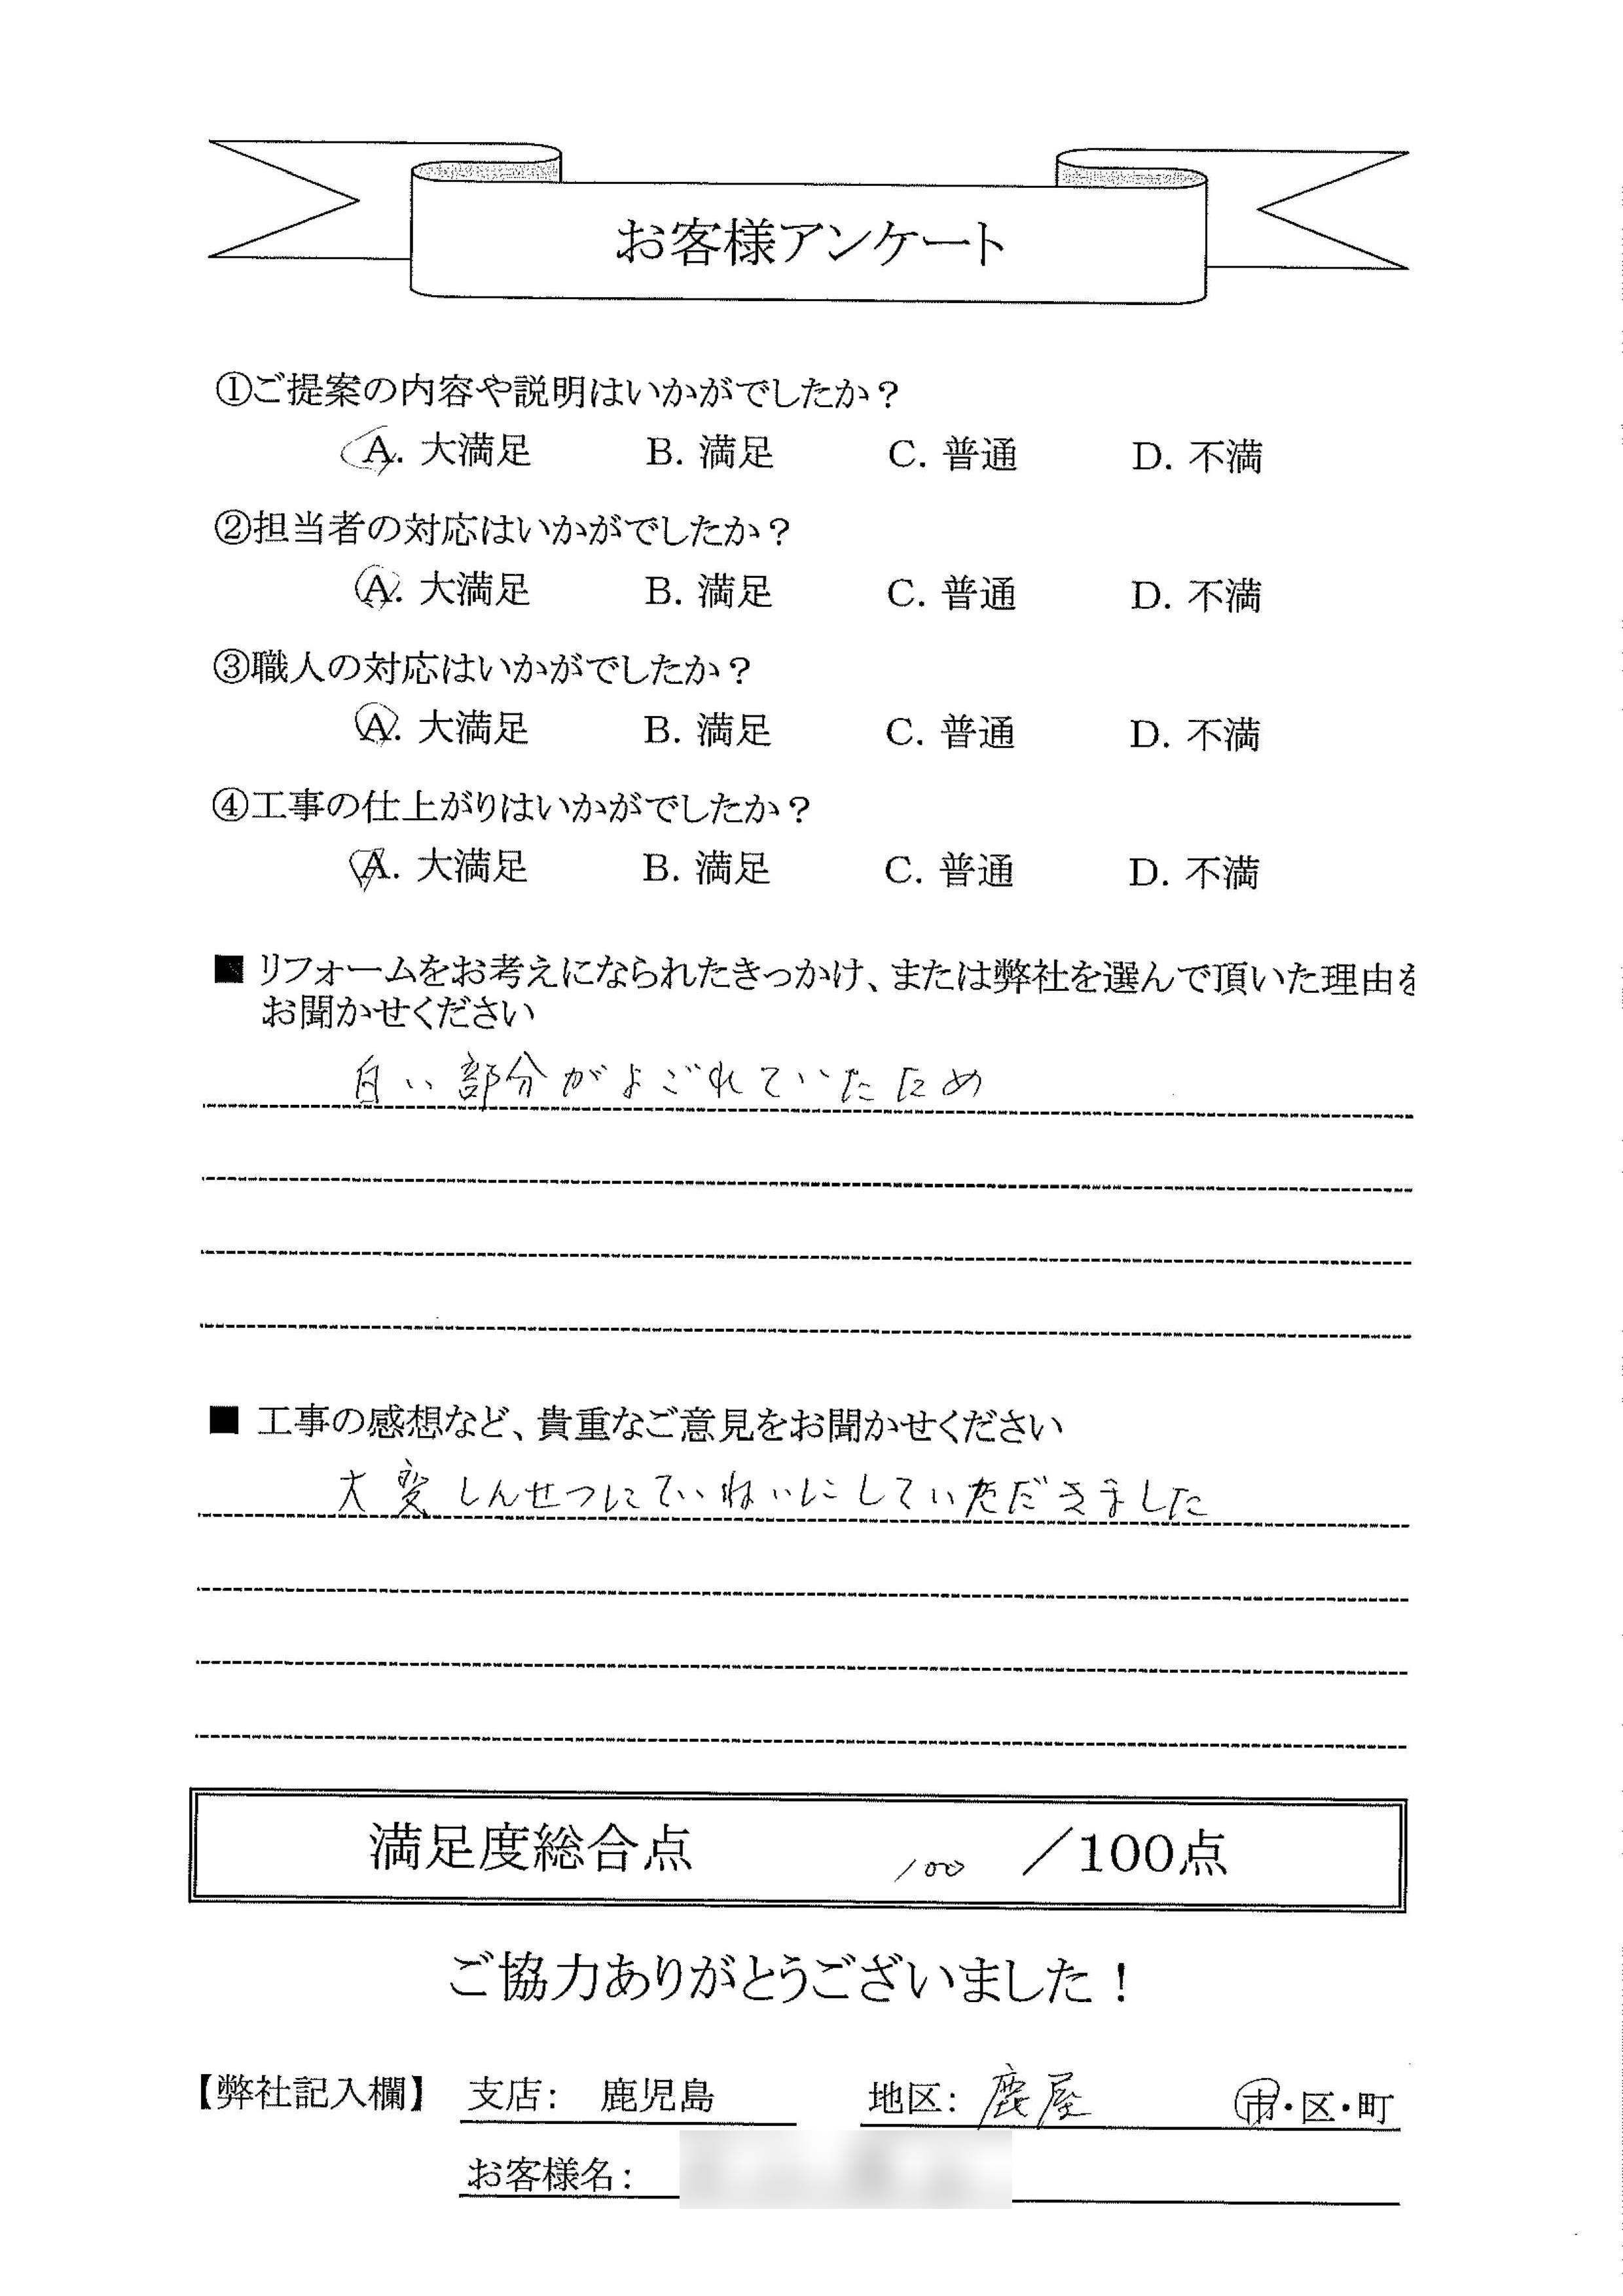 お客様アンケート
①ご提案の内容や説明はいかがでしたか？
A. 大満足 B. 満足 C. 普通 D. 不満
②担当者の対応はいかがでしたか？
A. 大満足 B. 満足 C. 普通 D. 不満
③職人の対応はいかがでしたか？
A. 大満足 B. 満足 C. 普通 D. 不満
④工事の仕上がりはいかがでしたか？
A. 大満足 B. 満足 C. 普通 D. 不満
■ リフォームをお考えになられたきっかけ、または弊社を選んで頂いた理由を
お聞かせください
白い部分がよごれていたため
■ 工事の感想など、貴重なご意見をお聞かせください
大変しんせつにていねいにしていただきました
満足度総合点 100 ／100点
ご協力ありがとうございました！
【弊社記入欄】 支店： 鹿児島 地区：鹿屋 市・区・町
お客様名：